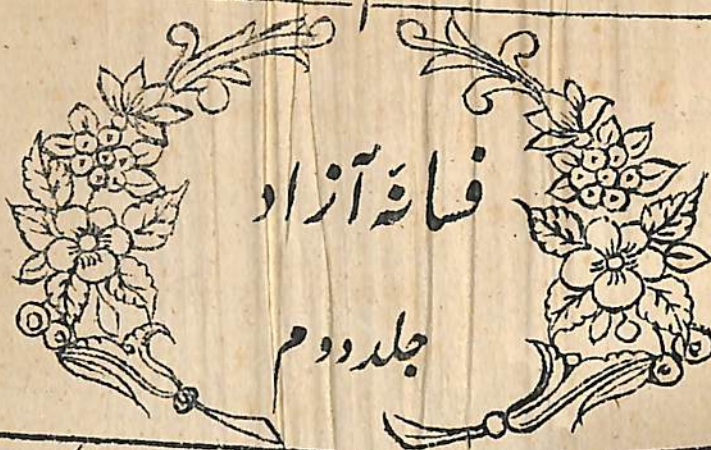 فسانۂ آزاد
جلد دوم